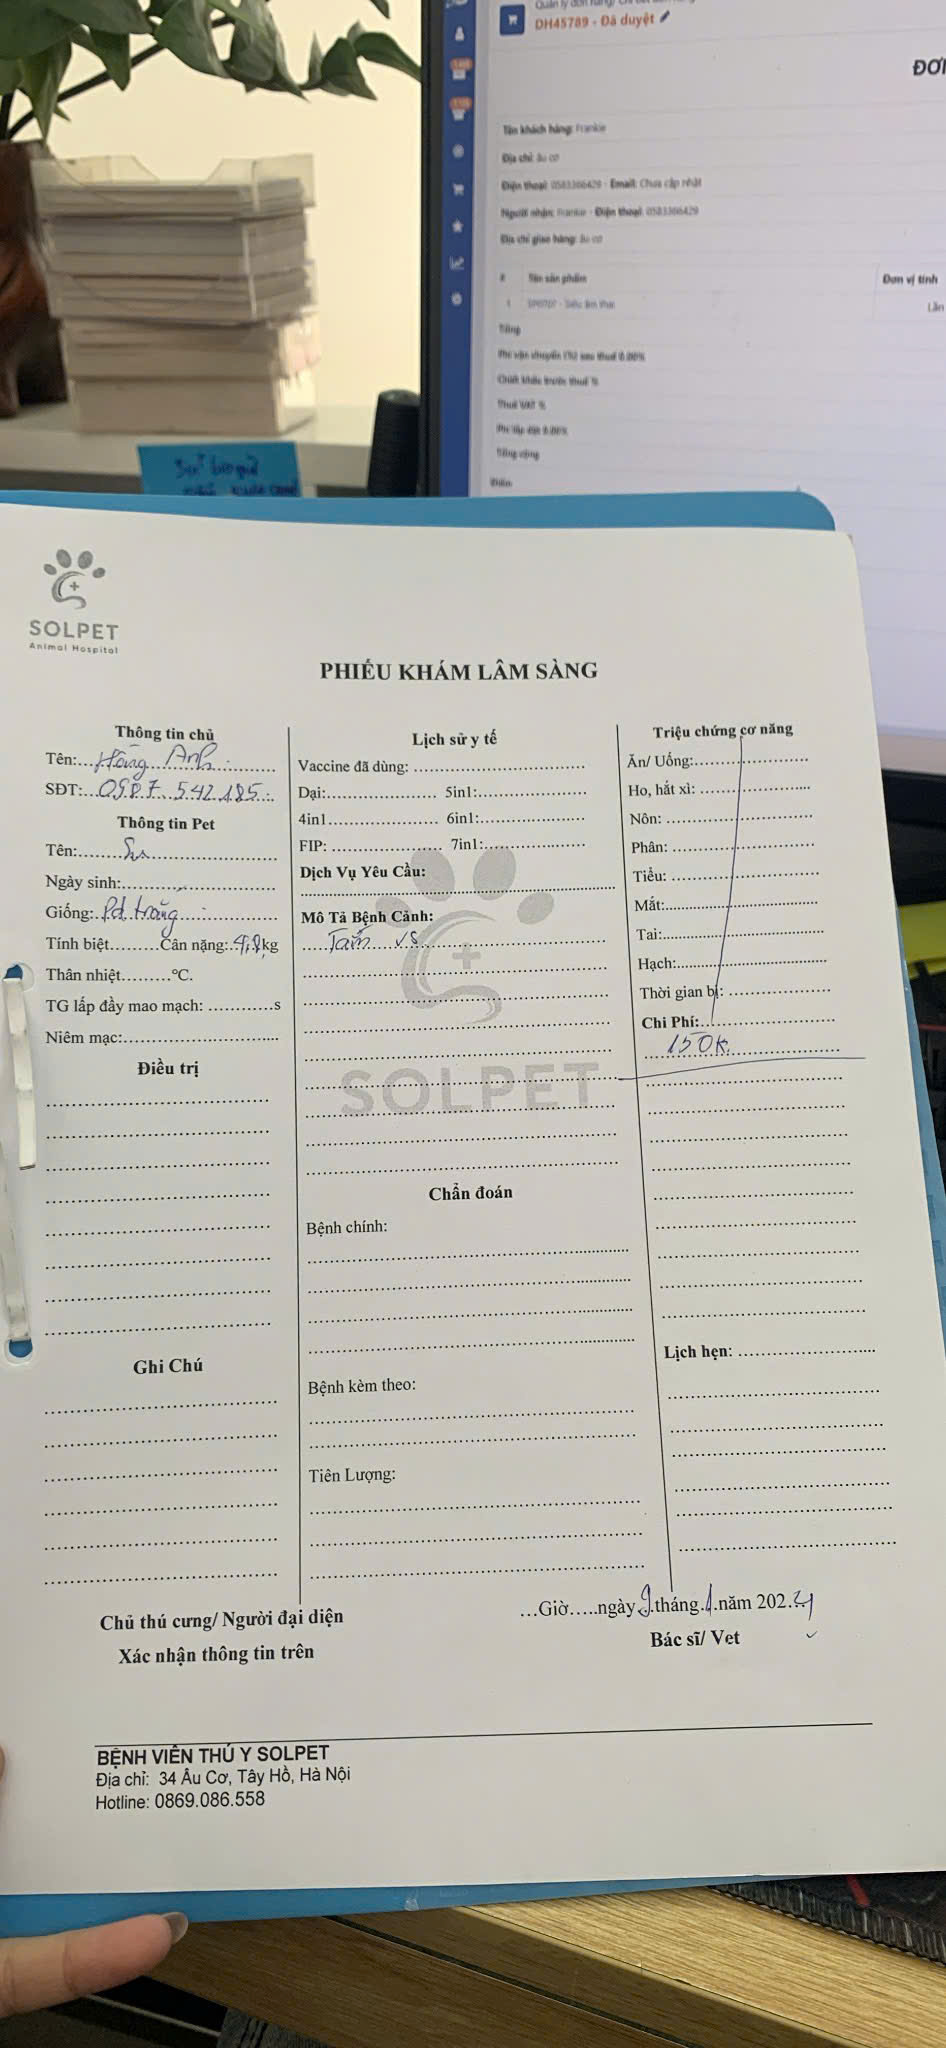 DH45789 - Đã duyệt
ĐƠN
Tên khách hàng: Frankie
Địa chỉ: âu cơ
Điện thoại: 0583366429 - Email: Chưa cập nhật
Người nhận: Frankie - Điện thoại: 0583366429
Địa chỉ giao hàng: âu cơ
# Tên sản phẩm Đơn vị tính
1 Siêu âm thai Lần
Tổng
Phí vận chuyển (%) sau thuế 0.00%
Chiết khấu trước thuế %
Thuế VAT %
Phí lắp đặt 0.00%
Tổng cộng
SOLPET
Animal Hospital
PHIẾU KHÁM LÂM SÀNG
Thông tin chủ
Tên: Hồng Anh
SĐT: 0987 542 185
Thông tin Pet
Tên: Su
Ngày sinh:
Giống: Pd trắng
Tính biệt Cân nặng: 4,8 kg
Thân nhiệt °C.
TG lấp đầy mao mạch: s
Niêm mạc:
Điều trị
Ghi Chú
Lịch sử y tế
Vaccine đã dùng:
Dại: 5in1:
4in1 6in1:
FIP: 7in1:
Dịch Vụ Yêu Cầu:
Mô Tả Bệnh Cảnh:
Tắm vs
SOLPET
Chẩn đoán
Bệnh chính:
Bệnh kèm theo:
Tiên Lượng:
Triệu chứng cơ năng
Ăn/ Uống:
Ho, hắt xì:
Nôn:
Phân:
Tiểu:
Mắt:
Tai:
Hạch:
Thời gian bị:
Chi Phí:
150k
Lịch hẹn:
Chủ thú cưng/ Người đại diện
Xác nhận thông tin trên
...Giờ.....ngày 9 tháng 1 năm 2024
Bác sĩ/ Vet
BỆNH VIỆN THÚ Y SOLPET
Địa chỉ: 34 Âu Cơ, Tây Hồ, Hà Nội
Hotline: 0869.086.558